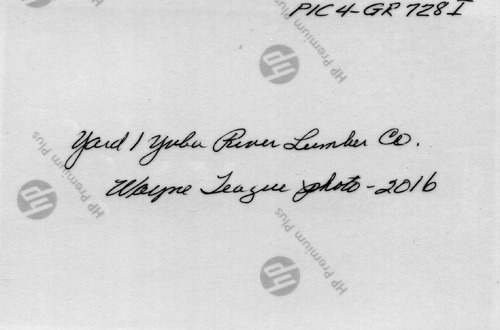 PIC4-GR 728I
hp HP Premium Plus
Yard 1 Yuba River Lumber Co.
HP Premium Plus
Wayne Teague photo-2016
hp HP Premium Plus
hp HP Premium Plus